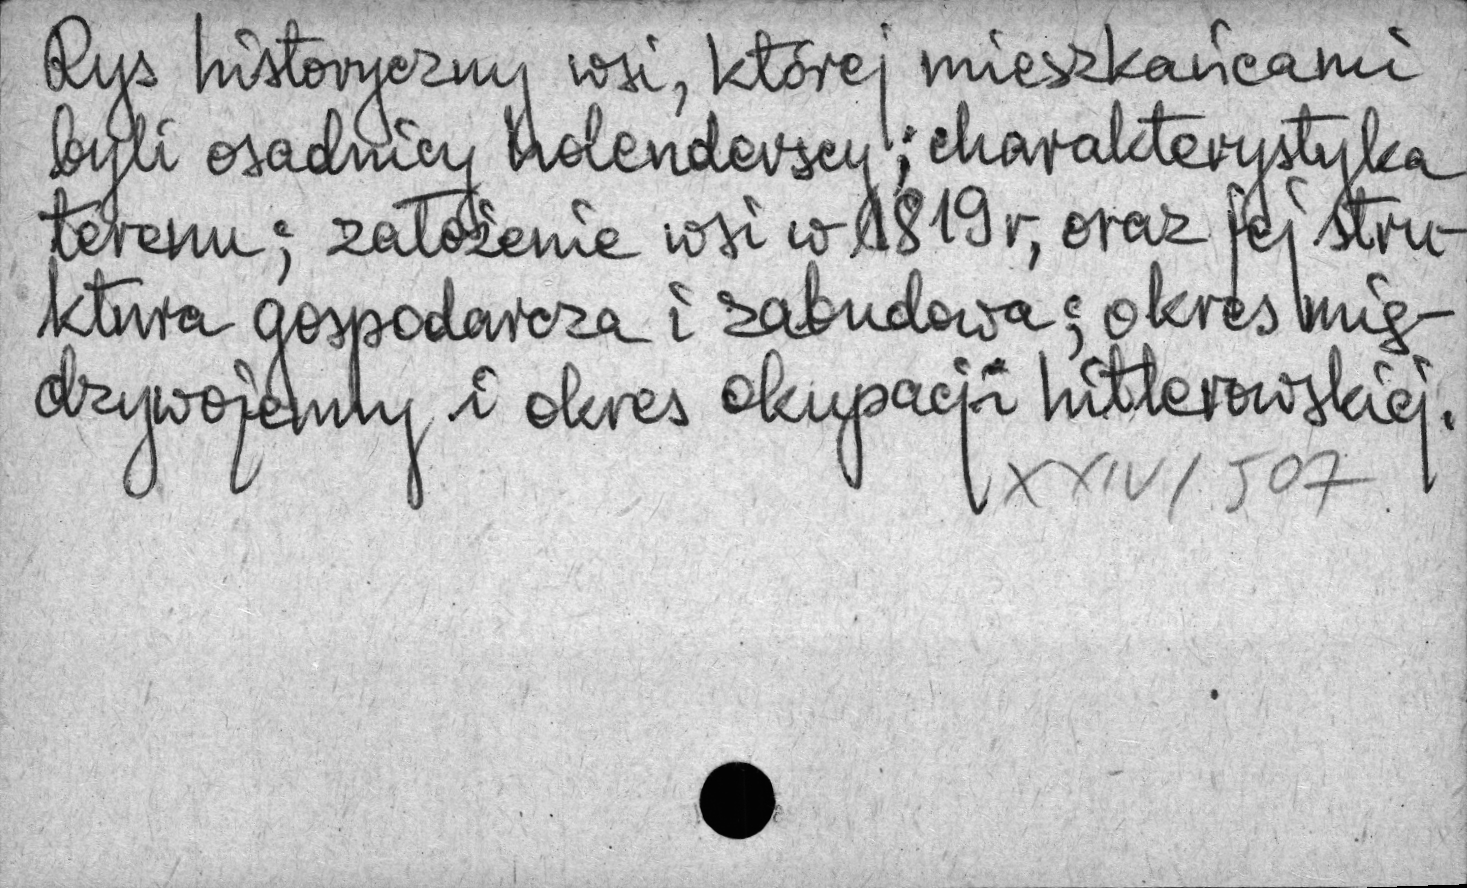 Rys historyczny wsi, której mieszkańcami
byli osadnicy holenderscy; charakterystyka
terenu; założenie wsi w 1819 r, oraz jej stru-
ktura gospodarcza i zabudowa; okres mię-
dzywojenny i okres okupacji hitlerowskiej.
XXIV/507